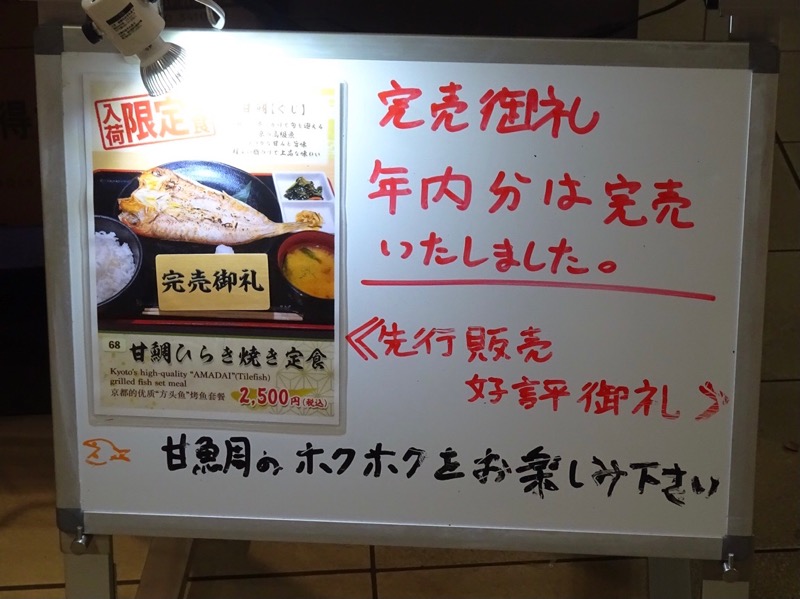 入荷限定
甘鯛【ぐじ】
完売御礼
68 甘鯛ひらき焼き定食
Kyoto's high-quality "AMADAI"(Tilefish)
grilled fish set meal
京都的优质"方头鱼"烤鱼套餐 2,500円(税込)
完売御礼
年内分は完売
いたしました。
《先行販売
好評御礼》
甘鯛のホクホクをお楽しみ下さい